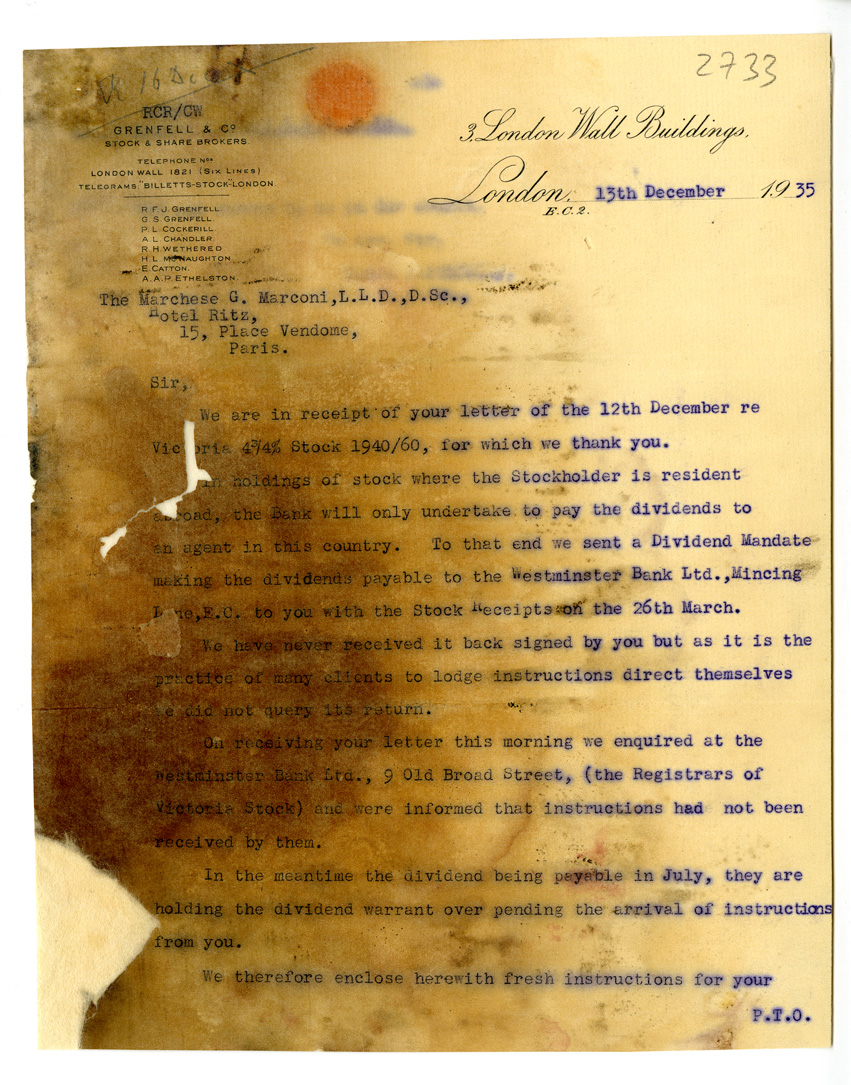 2733
16 Dec
RCR/CW
GRENFELL & Co
STOCK & SHARE BROKERS.
TELEPHONE Nos
LONDON WALL 1821 (SIX LINES)
TELEGRAMS "BILLETTS-STOCK-LONDON
R.F.J. GRENFELL.
G.S. GRENFELL.
P.L. COCKERILL
A.L. CHANDLER.
R.H. WETHERED
H.L. McNAUGHTON
E. CATTON.
A.A.P. ETHELSTON.
3, London Wall Buildings,
London, 13th December 1935
E.C.2.
The Marchese G. Marconi,L.L.D.,D.Sc.,
Hotel Ritz,
15, Place Vendome,
Paris.
Sir,
We are in receipt of your letter of the 12th December re
Victoria 4¾% Stock 1940/60, for which we thank you.
In holdings of stock where the Stockholder is resident
abroad, the Bank will only undertake to pay the dividends to
an agent in this country. To that end we sent a Dividend Mandate
making the dividends payable to the Westminster Bank Ltd.,Mincing
Lane,E.C. to you with the Stock Receipts on the 26th March.
We have never received it back signed by you but as it is the
practice of many clients to lodge instructions direct themselves
we did not query its return.
On receiving your letter this morning we enquired at the
Westminster Bank Ltd., 9 Old Broad Street, (the Registrars of
Victoria Stock) and were informed that instructions had not been
received by them.
In the meantime the dividend being payable in July, they are
holding the dividend warrant over pending the arrival of instructions
from you.
We therefore enclose herewith fresh instructions for your
P.T.O.